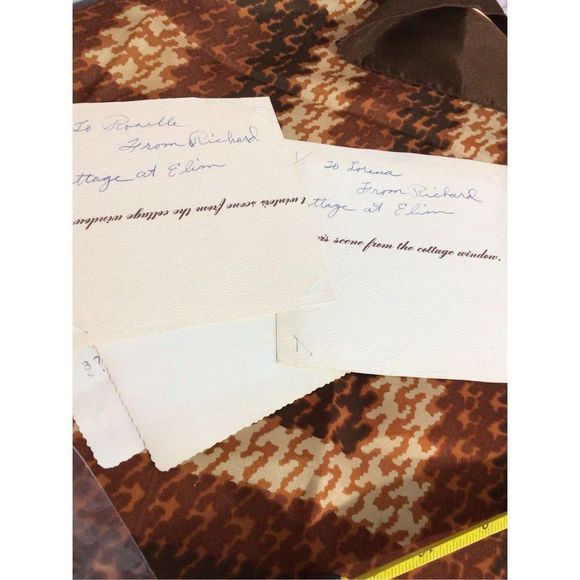 To Rozelle
From Richard
ttage at Elim
t winter's scene from the cottage window
To Lorena
From Richard
ttage at Elim
is scene from the cottage window.
3